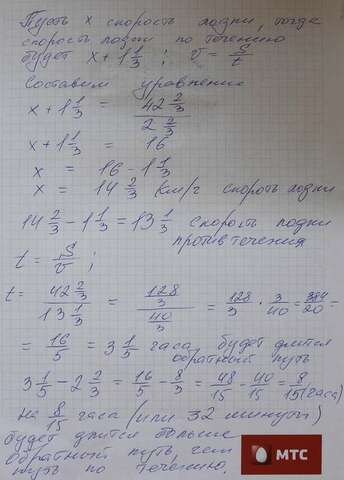 Пусть x скорость лодки, тогда
скорость лодки по течению
будет x + 1 1/3 ; v = S/t
Составим уравнение
x + 1 1/3 = 42 2/3 / 2 2/3
x + 1 1/3 = 16
x = 16 - 1 1/3
x = 14 2/3 км/г скороть лодки
14 2/3 - 1 1/3 = 13 1/3 скорость лодки
против течения
t = S/v ;
t = 42 2/3 / 13 1/3 = 128/3 / 40/3 = 128/3 · 3/40 = 384/120 =
= 16/5 = 3 1/5 часа будет длится
обратный путь
3 1/5 - 2 2/3 = 16/5 - 8/3 = 48/15 - 40/15 = 8/15 (часа)
на 8/15 часа (или 32 минуты)
будет длится больше
обратный путь, чем
путь по течению.
МТС